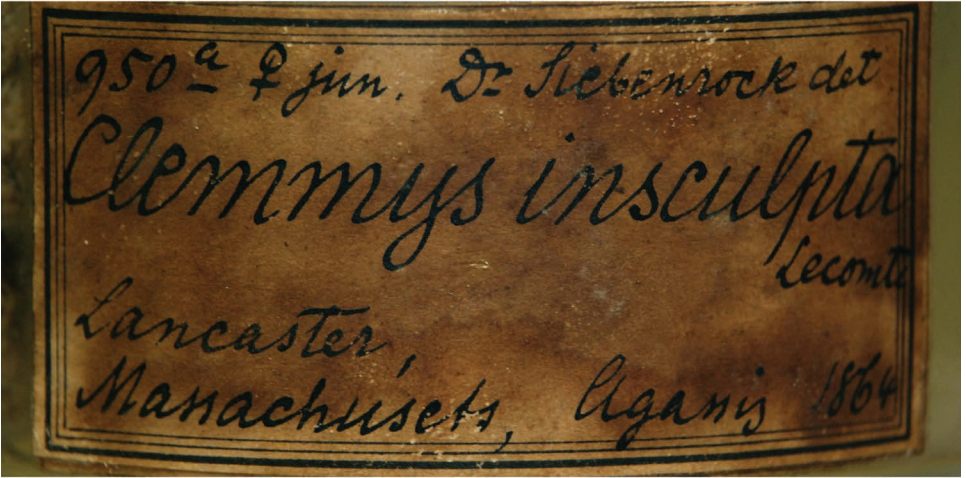 950a ♀ jun. Dr Siebenrock det
Clemmys insculpta
Lecomte
Lancaster,
Massachusets, Agassiz 1864